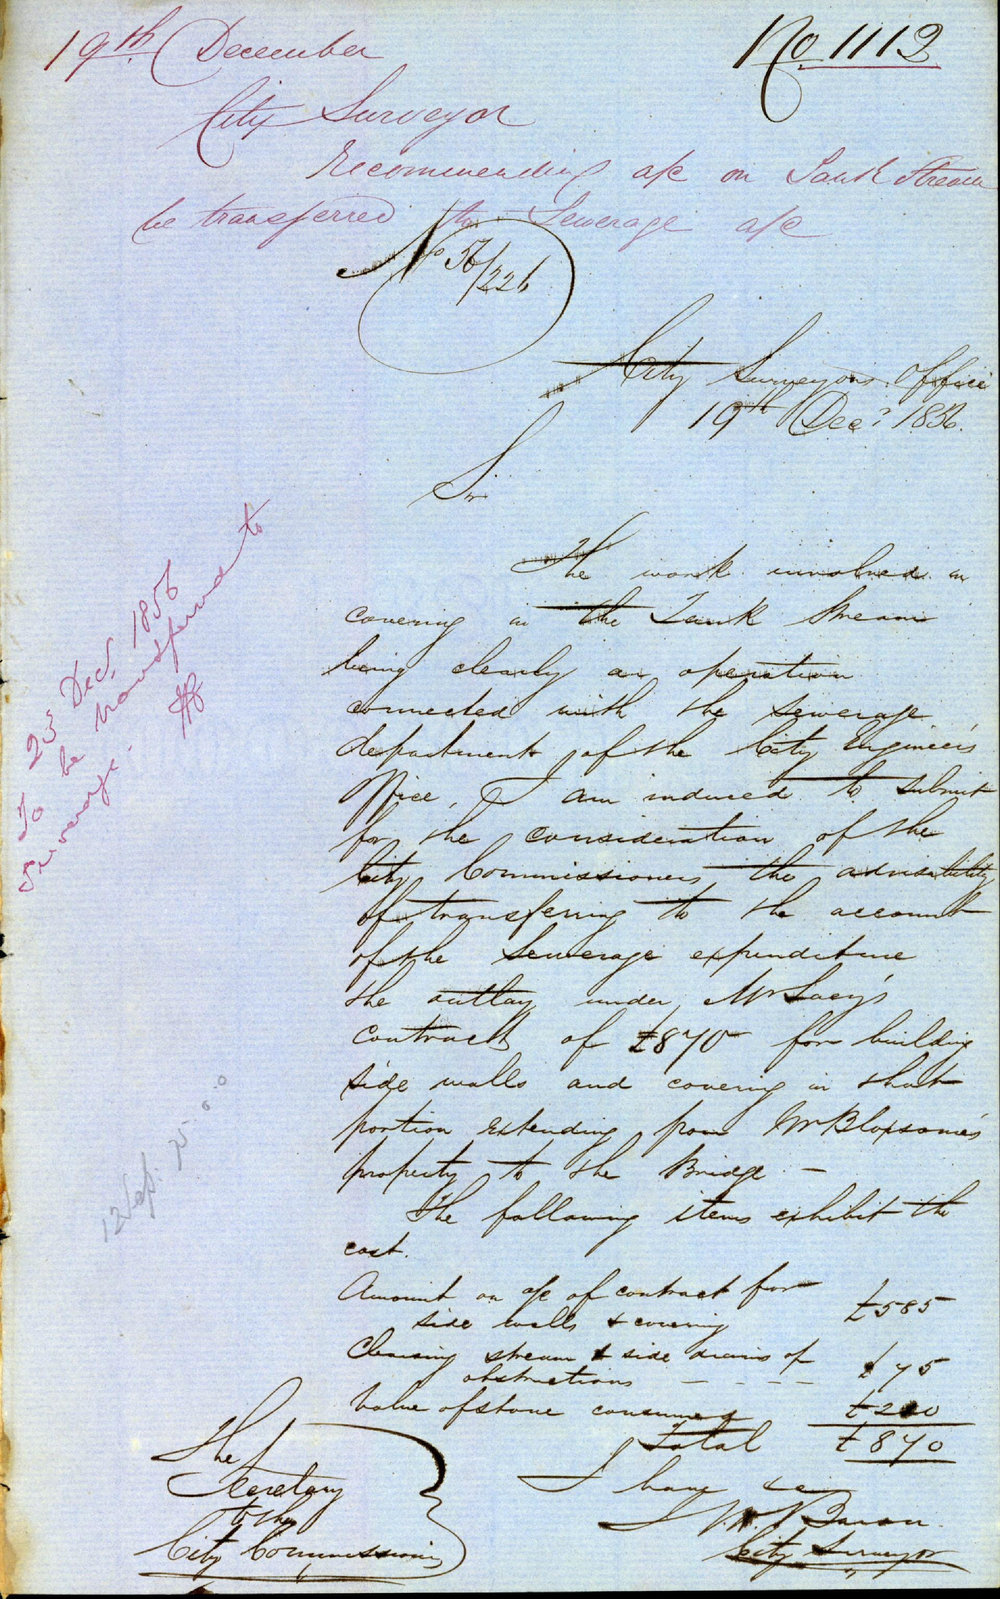 19th December
No. 1112
City Surveyor
Recommending a/c on Tank Stream
be transferred to Sewerage a/c
No 56/226
City Surveyors Office
19th Decr 1856.
Sir
The work involved in
covering in the Tank Stream
being clearly an operation
connected with the sewerage
department of the City Engineers
Office, I am induced to submit
for the consideration of the
City Commissioners the advisability
of transferring to the account
of the Sewerage expenditure
the outlay under Mr Lucy's
contract of £870 for building
side walls and covering in that
portion extending from Mr Bloxsome's
property to the Bridge –
The following items exhibit the
cost.
Amount on a/c of contract for
side walls & covering £585
Cleaning stream & side drains of
obstructions – – – – £75
Value of stone consumed £210
Total £870
I have &c
City Surveyor
The
Secretary
to the
City Commissioners
23 Decr 1856
To be transferred to
Sewerage.
12 Sep.